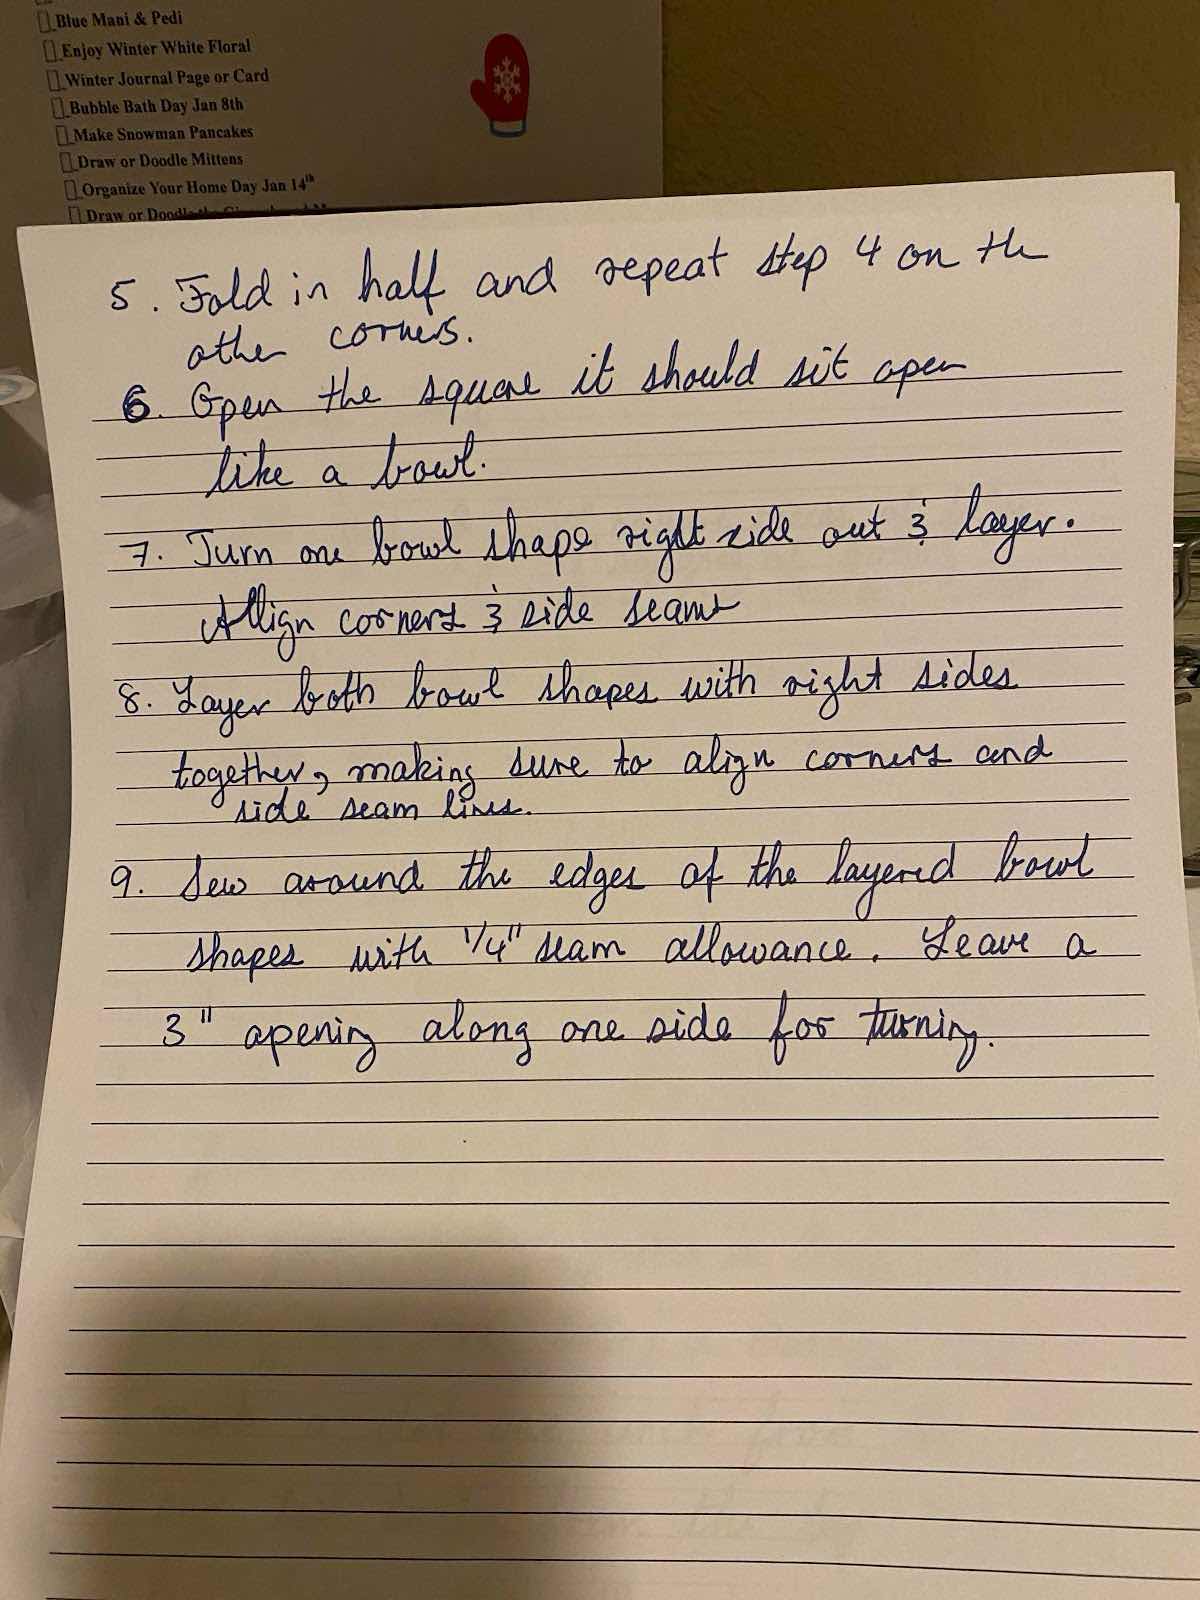 Blue Mani & Pedi
Enjoy Winter White Floral
Winter Journal Page or Card
Bubble Bath Day Jan 8th
Make Snowman Pancakes
Draw or Doodle Mittens
Organize Your Home Day Jan 14th
Draw or Doodle the
5. Fold in half and repeat step 4 on the
other corners.
6. Open the square it should sit open
like a bowl.
7. Turn one bowl shape right side out & layer.
Allign corners & side seams
8. Layer both bowl shapes with right sides
together, making sure to align corners and
side seam lines.
9. Sew around the edges of the layered bowl
shapes with 1/4" seam allowance. Leave a
3" opening along one side for turning.